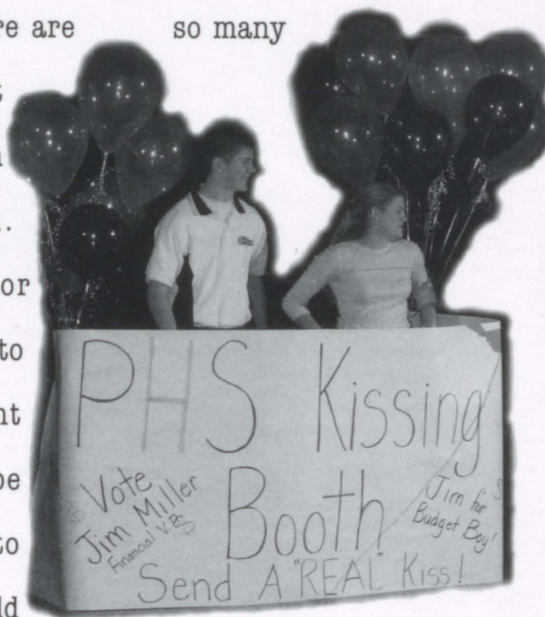 re are so many
or
to
nt
be
to
ld
PHS Kissing
Booth
Vote
Jim Miller
Financial V.P.
$ $
Jim for
Budget Boy!
$
Send A "REAL" Kiss!